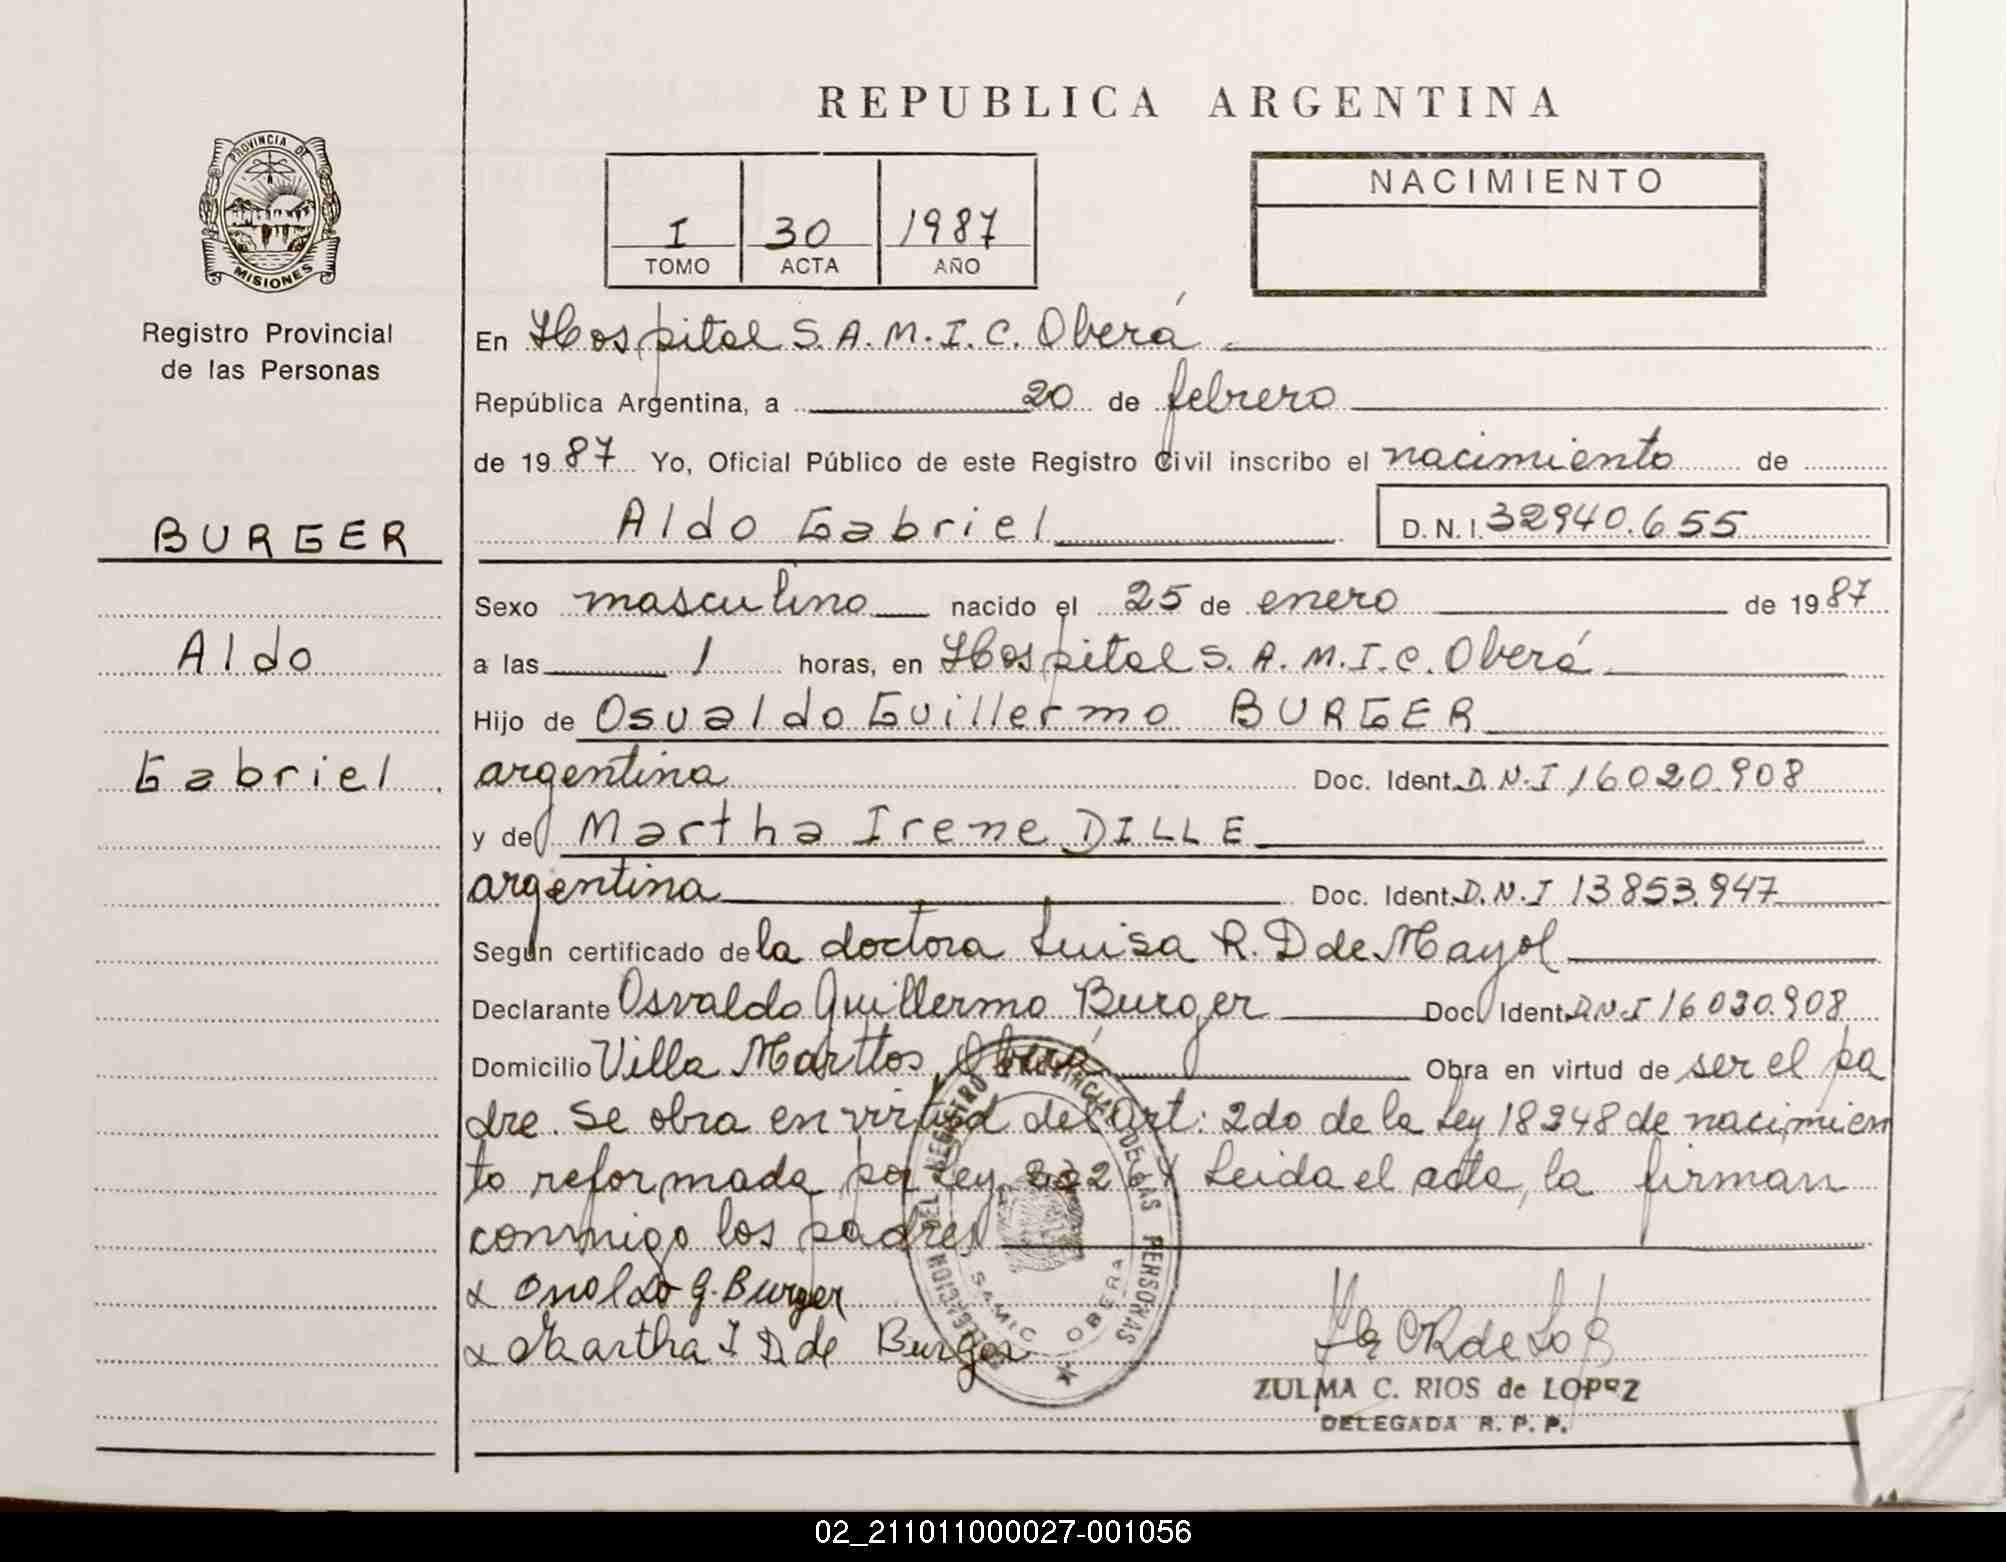 REPUBLICA ARGENTINA
PROVINCIA DE
MISIONES
Registro Provincial
de las Personas
I 30 1987
TOMO ACTA AÑO
NACIMIENTO
En Hospital S.A.M.I.C. Oberá
República Argentina, a 20 de febrero
de 1987 Yo, Oficial Público de este Registro Civil inscribo el nacimiento de
BURGER
Aldo Gabriel
D.N.I. 32940.655
Sexo masculino nacido el 25 de enero de 1987
Aldo
a las 1 horas, en Hospital S.A.M.I.C. Oberá
Hijo de Osvaldo Guillermo BURGER
Gabriel
argentina Doc. Ident. D.N.I 16020.908
y de Martha Irene DILLE
argentina Doc. Ident. D.N.I 13853.947
Según certificado de la doctora Luisa R. D de Mayol
Declarante Osvaldo Guillermo Burger Doc. Ident. D.N.I 16030.908
Domicilio Villa Marttos, Oberá Obra en virtud de ser el pa
dre. Se obra en virtud del Art: 2do de la Ley 18248 de nacimien
to reformada por Ley Leida el acta, la firman
conmigo los padres
G. Burger
Martha I D. de Burger
DELEGACION DEL REGISTRO PROVINCIAL DE LAS PERSONAS
SAMIC OBERA
ZULMA C. RIOS de LOPEZ
DELEGADA R. P. P.
02_211011000027-001056